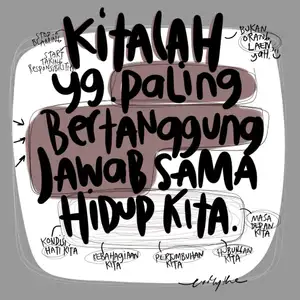 STOP
BLAMING
START
TAKING
RESPONSIBILITY
BUKAN
ORANG
LAEN
yah.
KITALAH
yg paling
BERTANGGUNG
JAWAB SAMA
HIDUP KITA.
KONDISI
HATI KITA
KEBAHAGIAAN
KITA
PERTUMBUHAN
KITA
HUBUNGAN
KITA
MASA
DEPAN
KITA